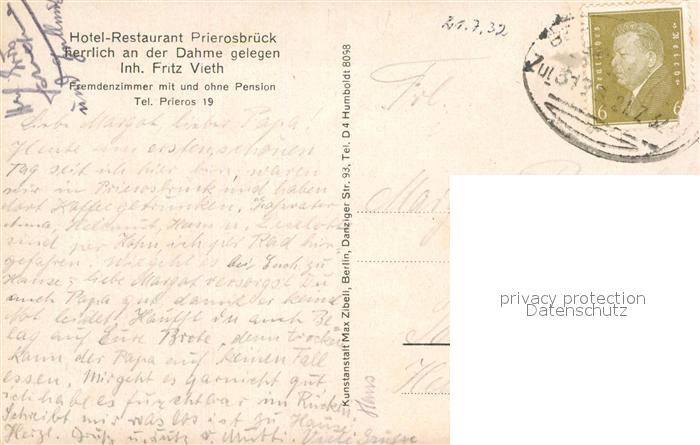 Hotel-Restaurant Prierosbrück
herrlich an der Dahme gelegen
Inh. Fritz Vieth
Fremdenzimmer mit und ohne Pension
Tel. Prieros 19
21.7.32
Deutsches Reich
6 6
Zug 313
21.7.32
Liebe Margot lieber Papa
Heute am ersten schönen
Tag seit ich hier bin, waren
wir in Prierosbrück und haben
dort Kaffee getrunken,
Helmut, Hans u. Liselotte
sind per Bahn ich per Rad hin
gefahren. Wie geht es bei Euch zu
Hause, liebe Margot versorgst Du
auch Papa gut damit er keine
Not leidet. Kaufst Du auch Be
lag auf Eure Brote, denn trocken
kann der Papa auf keinen Fall
essen. Mir geht es garnicht gut
ich habe es furchtbar im Rücken
Schreibt mir was los ist zu Hause
Herzl. Gruß u. Kuß v. Mutti. Viele Grüße
Hans
Kunstanstalt Max Zibell, Berlin, Danziger Str. 93, Tel. D 4 Humboldt 8098
Frl.
privacy protection
Datenschutz